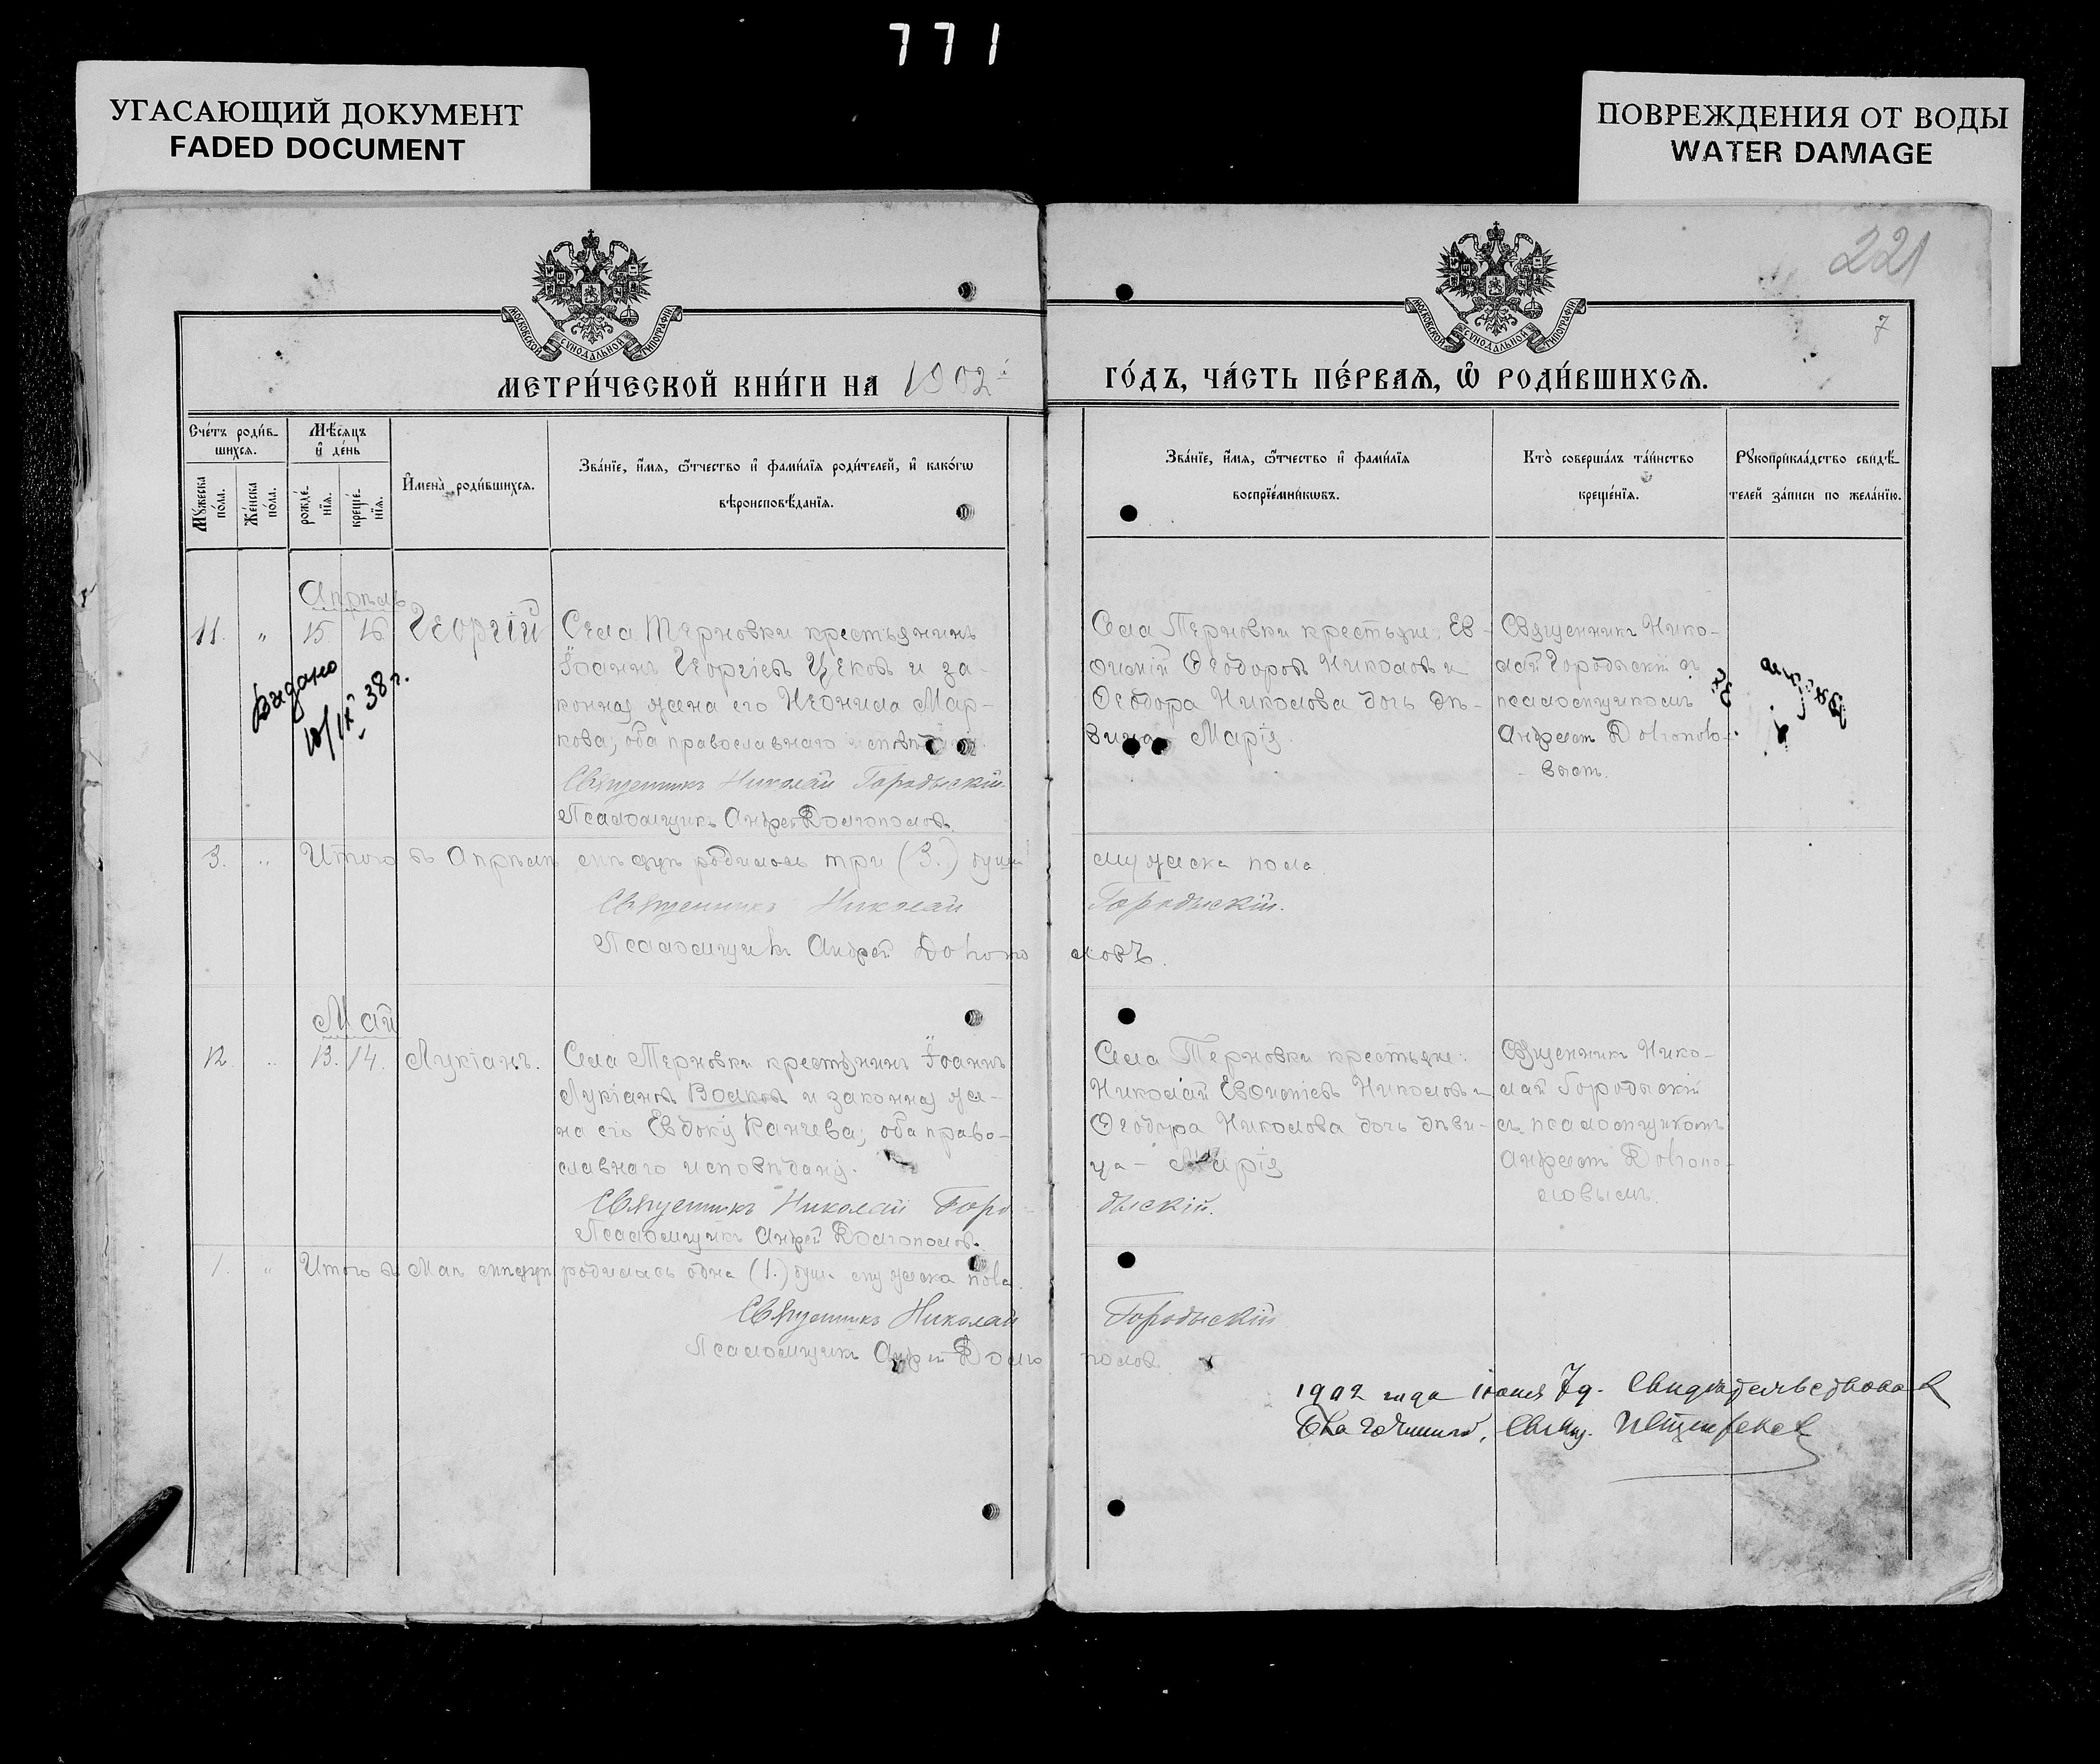 771
УГАСАЮЩИЙ ДОКУМЕНТ
FADED DOCUMENT
ПОВРЕЖДЕНИЯ ОТ ВОДЫ
WATER DAMAGE
221
7
МОСКОВСКОЙ СѴНОДАЛЬНОЙ ТИПОГРАФІИ
МОСКОВСКОЙ СѴНОДАЛЬНОЙ ТИПОГРАФІИ
МЕТРИ́ЧЕСКОЙ КНИ́ГИ НА 1902й
ГО́ДЪ, ЧА́СТЬ ПЕ́РВАѦ, Ѡ҆ РОДИ́ВШИХСѦ.
Сче́тъ роди́в-
шихсѧ.
Мꙋ́жеска по́ла.
Же́нска по́ла.
Мѣ́сѧцъ
и҆ де́нь
рожде́-
нїѧ.
креще́-
нїѧ.
И҆мена̀ роди́вшихсѧ.
Зва́нїе, и҆́мѧ, ѻ҆́тчество и҆ фами́лїѧ роди́телей, и҆ како́гѡ
вѣроисповѣ́данїѧ.
Зва́нїе, и҆́мѧ, ѻ҆́тчество и҆ фами́лїѧ
воспрїе́мникѡвъ.
Кто̀ соверша́лъ та́инство
креще́нїѧ.
Рꙋкоприкла́дство свидѣ́-
телей за́писи по жела́нїю.
Апрѣль
11. " 15 16 Георгій
Села Терновки крестьянинъ
Іоаннъ Георгіевъ Цековъ и за-
конная жена его Неонила Мар-
кова; оба православнаго
Священникъ Николай Городыскій
Псаломщикъ Андрей Долгополовъ.
Села Терновки крестьяне: Ев-
Ѳеодоровъ Николовъ и
Ѳеодора Николова дочь дѣ-
вица Марія.
Священникъ Нико-
лай Городыскій съ
псаломщикомъ
Андреемъ Долгополо-
вымъ.
Выдано
10/IX 38 г.
3. " Итого въ Апрѣлѣ мѣсяцѣ родилось три (3.) души
мужеска пола.
Священникъ Николай
Городыскій.
Псаломщикъ Андрей Долгопо
ловъ.
Май
12. " 13. 14. Лукіанъ.
Села Терновки крестьянинъ Іоаннъ
Лукіановъ Волковъ и законная же-
на его Евдокія Канчева; оба право-
славнаго исповѣданія.
Священникъ Николай Горо
дыскій.
Псаломщикъ Андрей Долгополовъ.
Села Терновки крестьяне:
Николай Николовъ и
Ѳеодора Николова дочь дѣви-
ца - Марія
Священникъ Нико-
лай Городыскій
съ псаломщикомъ
Андреемъ Долгопо-
ловымъ.
1. " Итого въ Маѣ мѣсяцѣ родилась одна (1.) душа мужеска пола.
Священникъ Николай
Городыскій
Псаломщикъ Андрей Долго
половъ
1902 года Іюня 7 д. Свидѣтельствовалъ
Благочинный, Свящ.